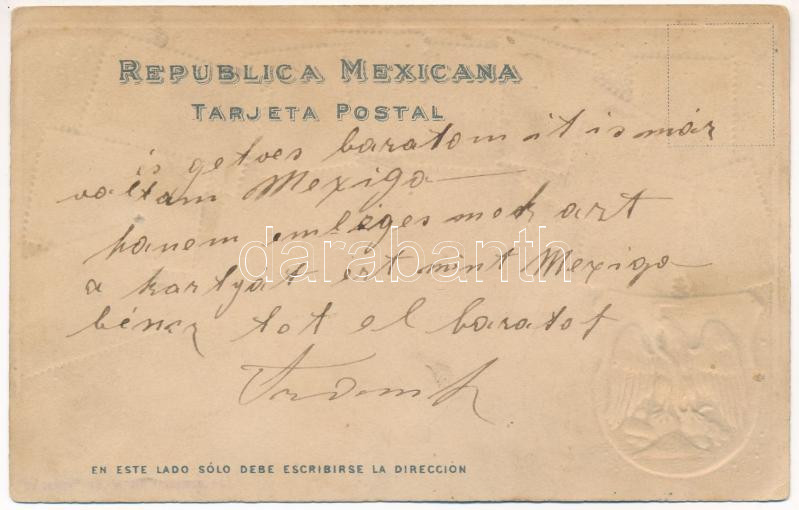 REPUBLICA MEXICANA
TARJETA POSTAL
is getves baratom it is már
voltam Mexiga
hanem emléges mek azt
a kartyát ert mint Mexiga
tot el baratot
darabanth
EN ESTE LADO SÓLO DEBE ESCRIBIRSE LA DIRECCIÓN